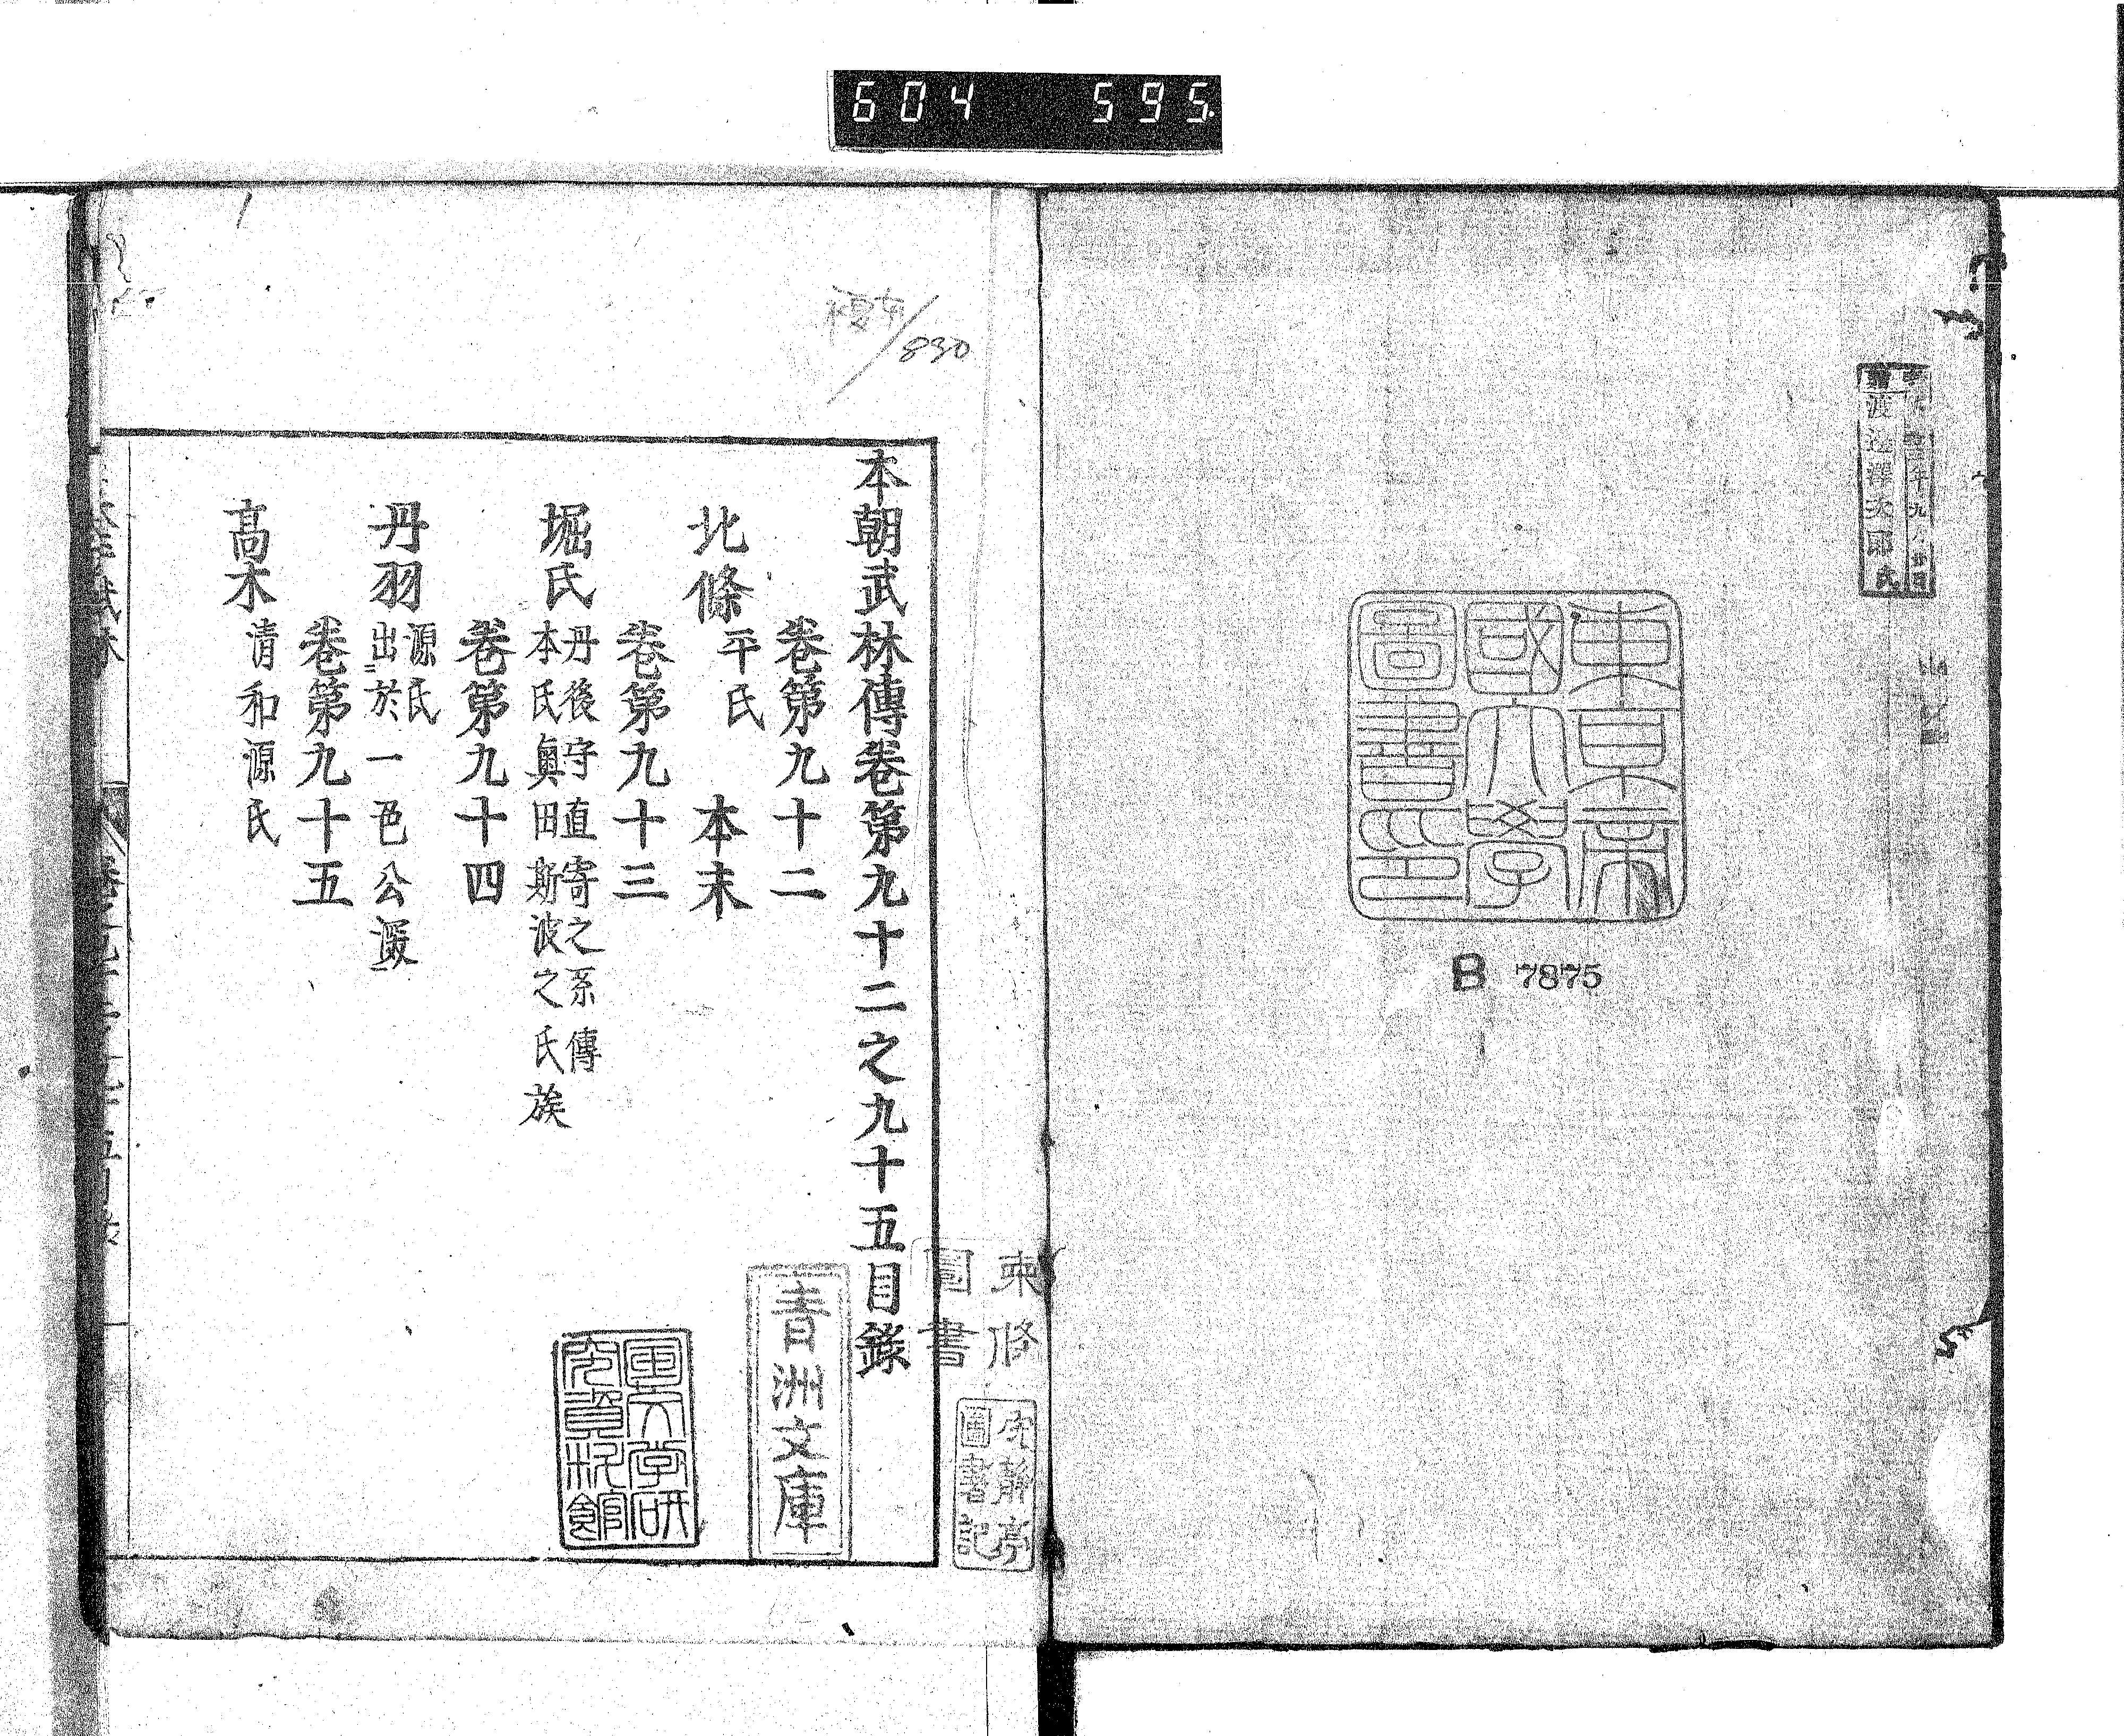 604 595.
渡辺澤次郎氏
東京帝
國大學
圖書印
B 7875
複本/830
本朝武林傳卷第九十二之九十五目錄
卷第九十二
北條 平氏 本末
卷第九十三
堀氏 丹後守直寄之系傳
本氏奥田斯波之氏族
卷第九十四
丹羽 源氏
出於一色公深
卷第九十五
髙木 清和源氏
圖書
靜亭
圖書記
青洲文庫
史大学研
究資料館